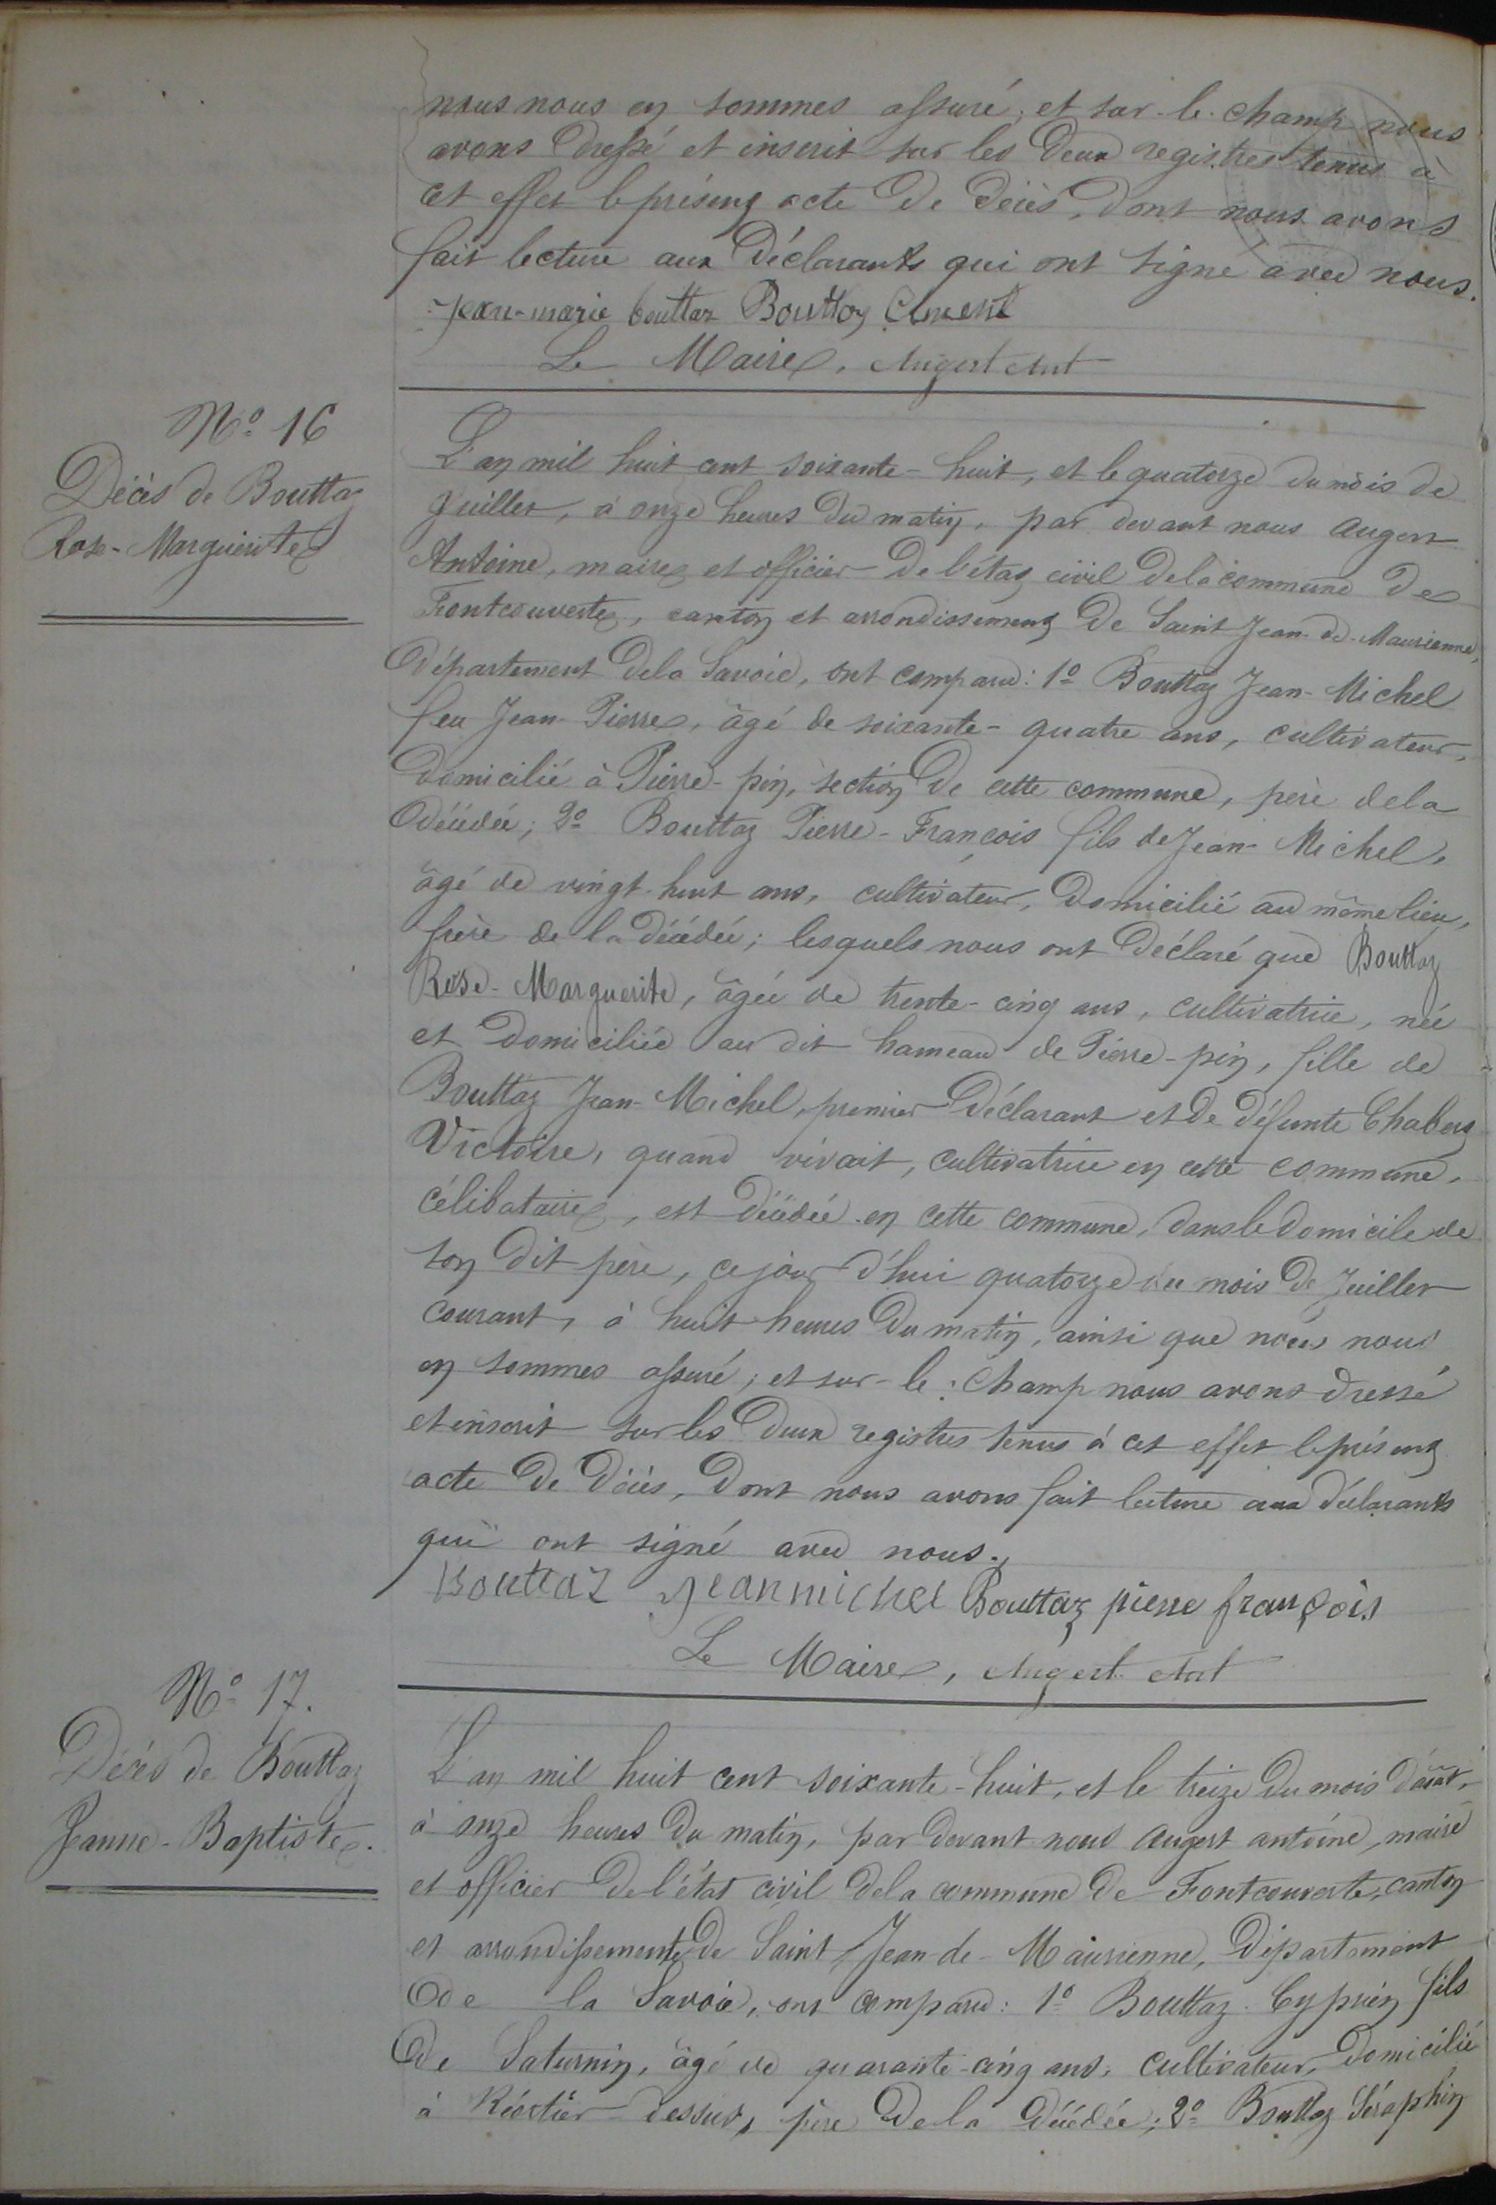 nous nous en sommes assuré, et sur-le-champ nous
avons dressé et inscrit sur les deux registres tenus à
cet effet le présent acte de décès, dont nous avons
fait lecture aux déclarants qui ont signé avec nous.
Jean-marie bouttaz Bouttaz
Le Maire, Augert Ant
N° 16
Décès de Bouttaz
Rose-Marguerite
L'an mil huit cent soixante-huit, et le quatorze du mois de
Juillet, à onze heures du matin, par devant nous Augert
Antoine, maire et officier de l'état civil de la commune de
Fontcouverte, canton et arrondissement de Saint Jean-de-Maurienne,
département de la Savoie, ont comparu: 1° Bouttaz Jean-Michel
feu Jean-Pierre, âgé de soixante-quatre ans, cultivateur,
domicilié à Pierre-pin, section de cette commune, père de la
décédée; 2° Bouttaz Pierre-François fils de Jean-Michel,
âgé de vingt-huit ans, cultivateur, domicilié au même lieu,
frère de la décédée; lesquels nous ont déclaré que Bouttaz
Rose-Marguerite, âgée de trente-cinq ans, cultivatrice, née
et domiciliée au dit hameau de Pierre-pin, fille de
Bouttaz Jean-Michel, premier déclarant et de défunte Chabert
Victoire, quand vivait, cultivatrice en cette commune,
célibataire, est décédée en cette commune, dans le domicile de
son dit père, ce jour d'hui quatorze du mois de Juillet
courant, à huit heures du matin, ainsi que nous nous
en sommes assuré; et sur-le-champ nous avons dressé
et inscrit sur les deux registres tenus à cet effet le présent
acte de décès, dont nous avons fait lecture aux déclarants
qui ont signé avec nous.
Bouttaz Jean michel Bouttaz pierre françois
Le Maire, Augert Ant
N° 17.
Décès de Bouttaz
Jeanne-Baptiste.
L'an mil huit cent soixante-huit, et le treize du mois d'août,
à onze heures du matin, par devant nous Augert antoine, maire
et officier de l'état civil de la commune de Fontcouverte, canton
et arrondissement de Saint Jean-de-Maurienne, département
de la Savoie, ont comparu: 1° Bouttaz Cyprien fils
de Saturnin, âgé de quarante-cinq ans, cultivateur, domicilié
à dessus, père de la décédée; 2° Bouttaz Séraphin